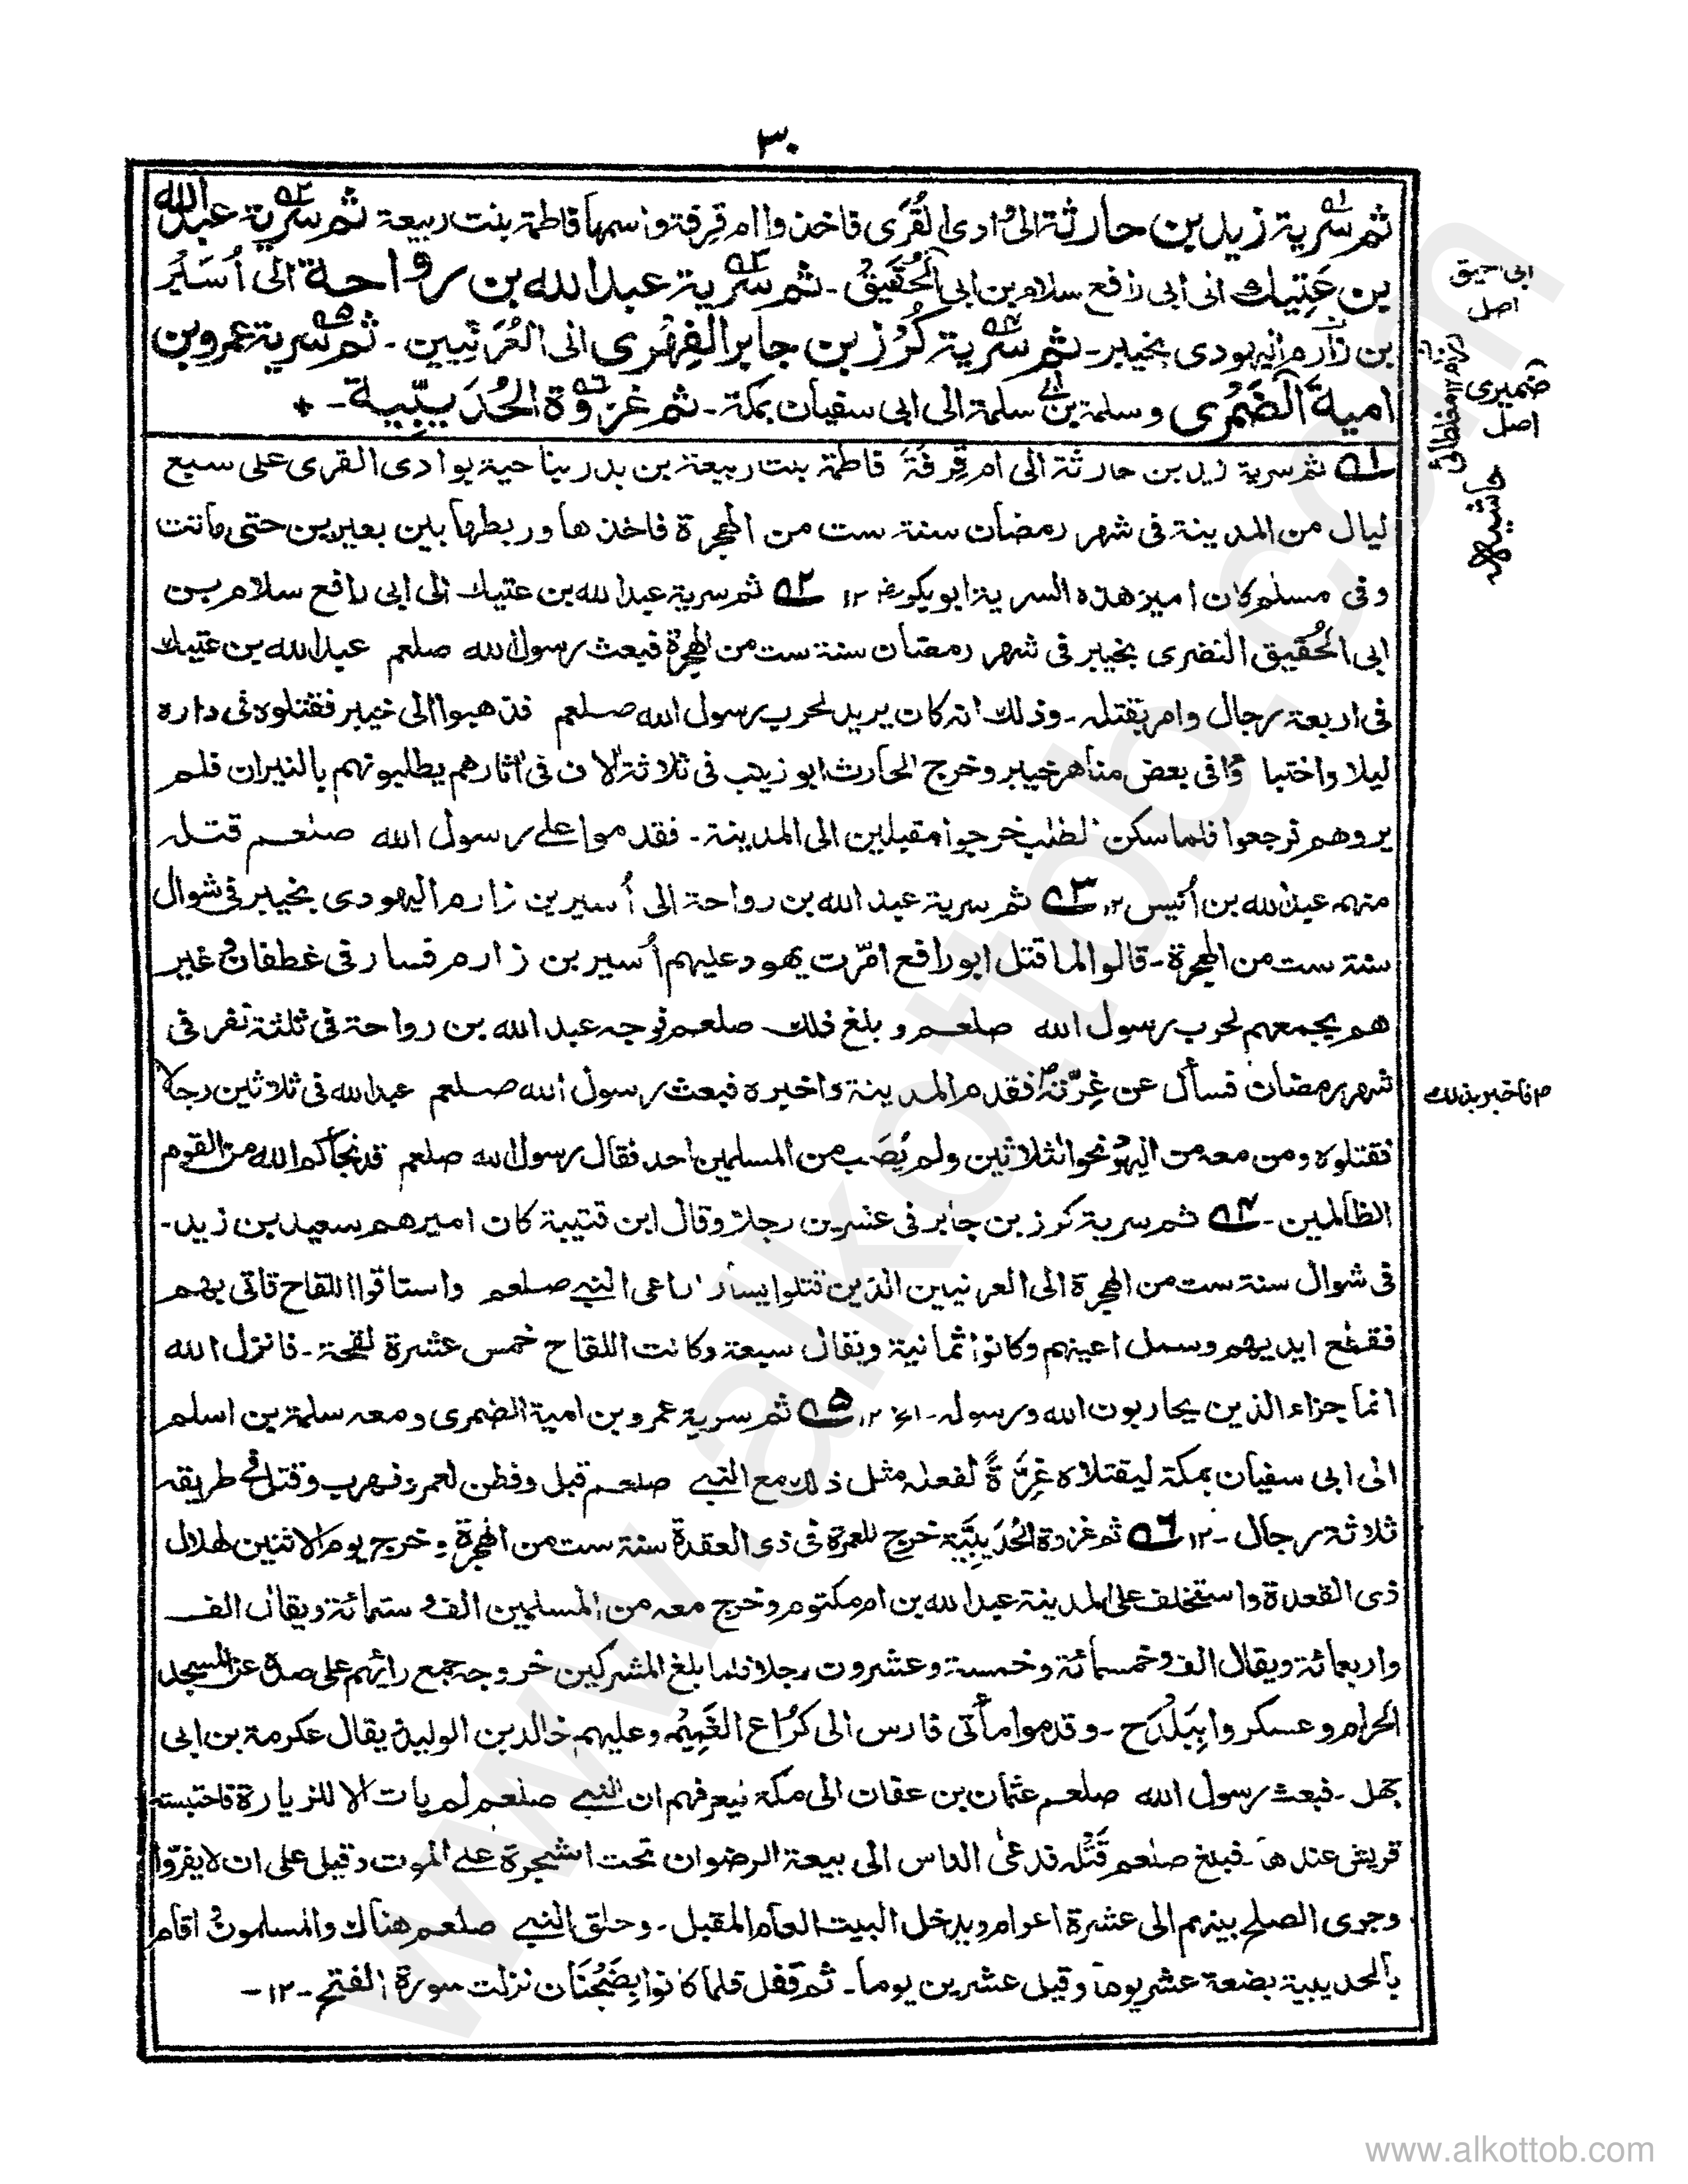 ٣٠
ثم سرية زيد بن حارثة الى وادى القُرَى فاخذوا ام قِرفة واسمها فاطمة بنت ربيعة ثم سرية عبد الله
بن عَتِيك الى ابى رافع سلام بن ابى الحُقَيق ـ ثم سرية عبد الله بن رواحة الى اُسَيْر
بن زارم اليهودى بخيبر ـ ثم سرية كُرْز بن جابر الفِهْرى الى العُرَنيين ـ ثم سرية عمرو بن
امية الضَمْرى وسلمة بن سلمة الى ابى سفيان بمكة ـ ثم غزوة الحُدَيبِيّة ـ
ابى احيق
اصل
ضميرى
اصل
حاشيه
٥١ ثم سرية زيد بن حارثة الى ام قِرفَة فاطمة بنت ربيعة بن بدر بناحية بوادى القرى على سبع
ليال من المدينة فى شهر رمضان سنة ست من الهجرة فاخذها وربطها بين بعيرين حتى ماتت
وفى مسلم كان امير هذه السرية ابو بكر ١٢ ٥٢ ثم سرية عبد الله بن عتيك الى ابى رافع سلام بن
ابى الحُقَيق النضرى بخيبر فى شهر رمضان سنة ست من الهجرة فبعث رسول الله صلعم عبد الله بن عتيك
فى اربعة رجال وامر بقتله ـ وذلك انه كان يريد لحرب رسول الله صلعم فذهبوا الى خيبر فقتلوه فى داره
ليلا واختبا وافى بعض مناهر خيبر وخرج الحارث ابو زينب فى ثلاثة الاف فى اثارهم يطلبونهم بالنيران فلم
يروهم فرجعوا فلما سكن الطلب خرجوا مقبلين الى المدينة ـ فقدموا على رسول الله صلعم قتله
منهم عبد الله بن اُنيس ١٢ ٥٣ ثم سرية عبد الله بن رواحة الى اُسير بن زارم اليهودى بخيبر فى شوال
سنة ست من الهجرة ـ قالوا لما قتل ابو رافع امّرت يهود عليهم اُسير بن زارم فسار فى غطفان وغير
هم يجمعهم لحرب رسول الله صلعم وبلغ ذلك صلعم فوجه عبد الله بن رواحة فى ثلثة نفر فى
شهر رمضان فسأل عن غِرّته فقدم المدينة واخبره فبعث رسول الله صلعم عبد الله فى ثلاثين رجلا
فاخبر بذلك
فقتلوه ومن معه من اليهود نحوا لثلاثين ولم يُصَب من المسلمين احد فقال رسول الله صلعم قد نجاكم الله من القوم
الظالمين ـ ٥٤ ثم سرية كرز بن جابر فى عشرين رجلا وقال ابن قتيبة كان اميرهم سعيد بن زيد ـ
فى شوال سنة ست من الهجرة الى العرنيين الذين قتلوا يسار راعى النبى صلعم واستاقوا اللقاح فاتى بهم
فقطع ايديهم وسمل اعينهم وكانوا ثمانية ويقال سبعة وكانت اللقاح خمس عشرة لقحة ـ فانزل الله
انما جزاء الذين يحاربون الله ورسوله ـ ١٢ ٥٥ ثم سرية عمرو بن امية الضمرى ومعه سلمة بن اسلم
الى ابى سفيان بمكة ليقتلاه غِرَّةً لفعله مثل ذلك مع النبى صلعم قبل وفطن لعمرو فهرب وقتل فى طريقه
ثلاثة رجال ـ ١٢ ٥٦ ثم غزوة الحُدَيبِيَّة خرج للعمرة فى ذى العقدة سنة ست من الهجرة وخرج يوم الاثنين لهلال
ذى القعدة واستخلف على المدينة عبد الله بن ام مكتوم وخرج معه من المسلمين الف وستمائة ويقال الف
واربعمائة ويقال الف وخمسمائة وخمسة وعشرون رجلا فلما بلغ المشركين خروجه جمع رائهم على صده عن المسجد
الحرام وعسكروا بِبَلْدَح ـ وقدموا مأتى فارس الى كُرَاع الغَمِيْم وعليهم خالد بن الوليد يقال عكرمة بن ابى
جهل ـ فبعث رسول الله صلعم عثمان بن عفان الى مكة ليعرفهم ان النبى صلعم لم يات الا للزيارة فاحتبسته
قريش عندها ـ فبلغ صلعم قَتْله فدعى الناس الى بيعة الرضوان تحت الشجرة على الموت وقيل على ان لا يفرّوا
وجرى الصلح بينهم الى عشرة اعوام ويدخل البيت العام المقبل ـ وحلق النبى صلعم هناك والمسلمون اقام
بالحديبية بضعة عشر يوما وقيل عشرين يوما ـ ثم قفل فلما كانوا بِضَجْنَان نزلت سورة الفتح ـ ١٢ ـ
www.alkottob.com
www.alkottob.com